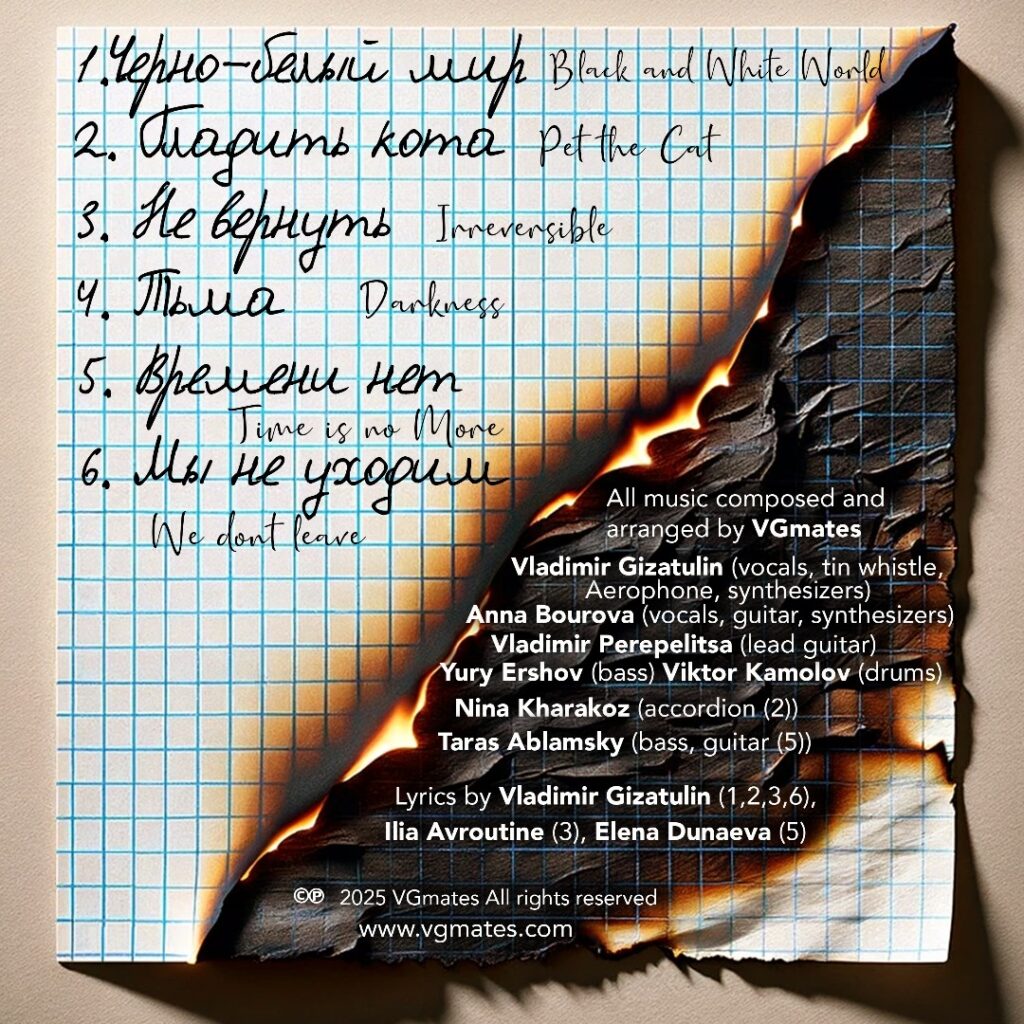 1. Черно-белый мир Black and White World
2. Гладить кота Pet the Cat
3. Не вернуть Irreversible
4. Тьма Darkness
5. Времени нет
Time is no More
6. Мы не уходим
We dont leave
All music composed and
arranged by VGmates
Vladimir Gizatulin (vocals, tin whistle,
Aerophone, synthesizers)
Anna Bourova (vocals, guitar, synthesizers)
Vladimir Perepelitsa (lead guitar)
Yury Ershov (bass) Viktor Kamolov (drums)
Nina Kharakoz (accordion (2))
Taras Ablamsky (bass, guitar (5))
Lyrics by Vladimir Gizatulin (1,2,3,6),
Ilia Avroutine (3), Elena Dunaeva (5)
©℗ 2025 VGmates All rights reserved
www.vgmates.com